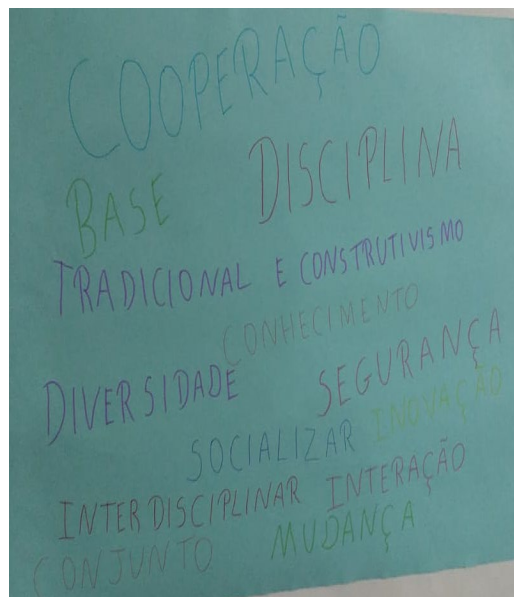 COOPERAÇÃO
BASE DISCIPLINA
TRADICIONAL E CONSTRUTIVISMO
CONHECIMENTO
DIVERSIDADE SEGURANÇA
SOCIALIZAR INOVAÇÃO
INTERDISCIPLINAR INTERAÇÃO
CONJUNTO MUDANÇA